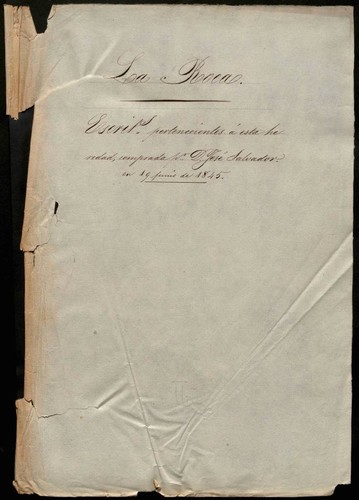 La Roca.
Escrit.s pertenecientes á esta he
redad, comprada p.r D. José Salvador
en 19 junio de 1845.